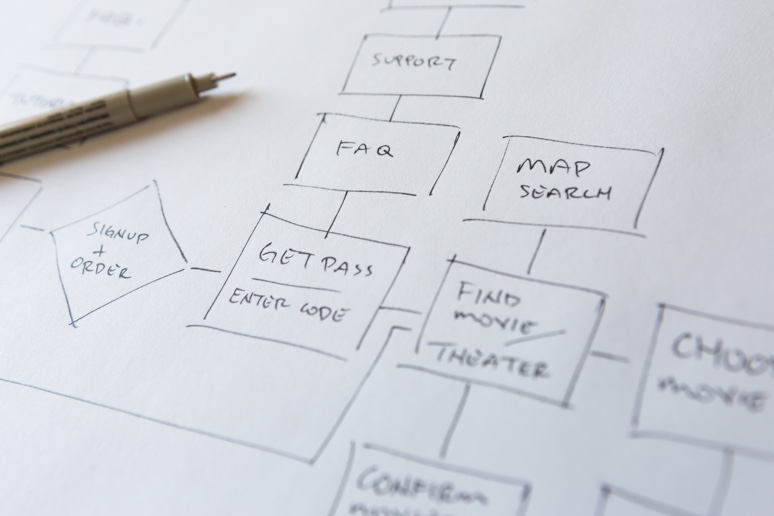 SUPPORT
FAQ
MAP
SEARCH
SIGNUP
+
ORDER
GET PASS
ENTER CODE
FIND
MOVIE/
THEATER
CHOO
MOVIE
CONFIRM